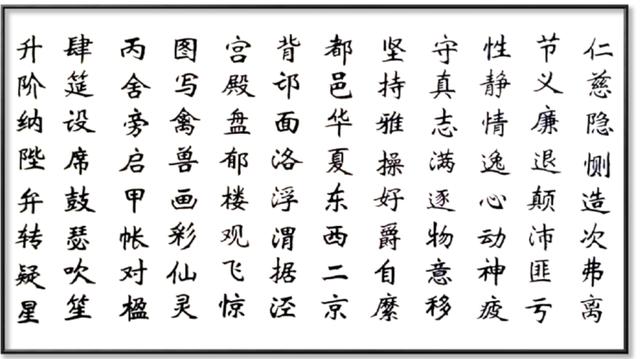 仁慈隐恻造次弗离
节义廉退颠沛匪亏
性静情逸心动神疲
守真志满逐物意移
坚持雅操好爵自縻
都邑华夏东西二京
背邙面洛浮渭据泾
宫殿盘郁楼观飞惊
图写禽兽画彩仙灵
丙舍旁启甲帐对楹
肆筵设席鼓瑟吹笙
升阶纳陛弁转疑星